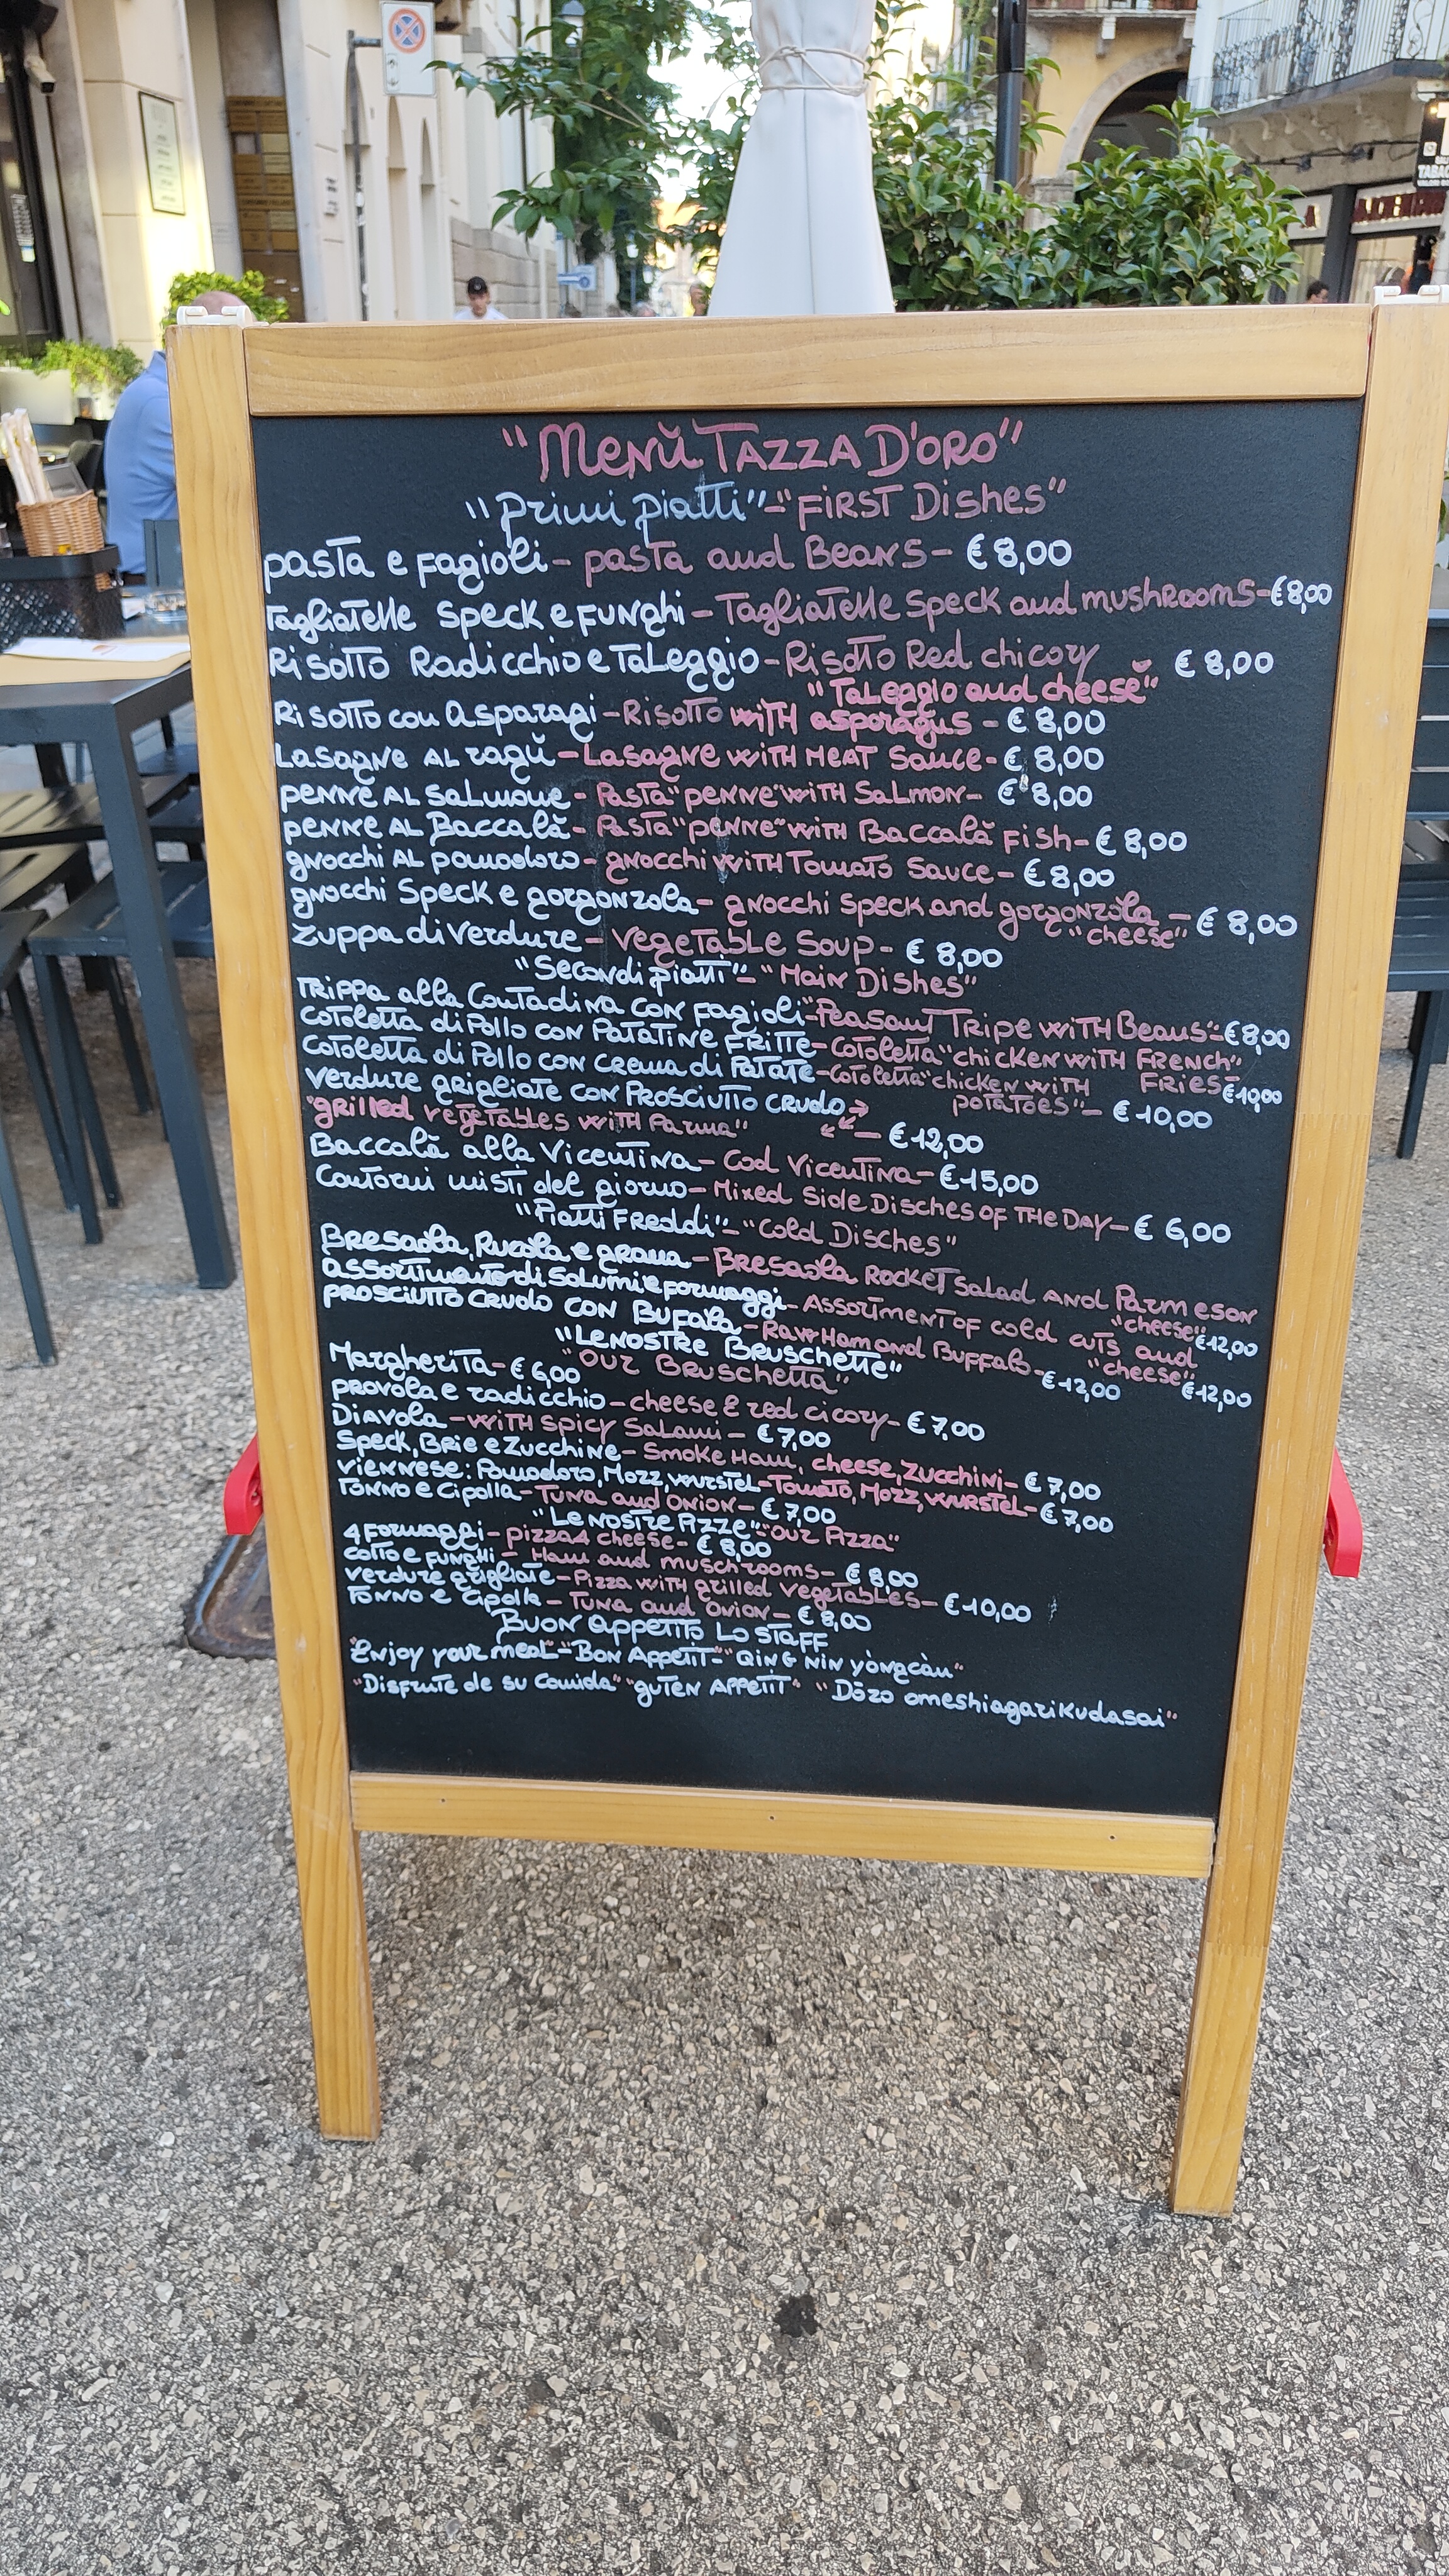 "Menù Tazza D'oro"
"primi piatti"-"First Dishes"
pasta e fagioli- pasta and Beans- € 8,00
Tagliatelle Speck e Funghi-Tagliatelle Speck and mushrooms-€8,00
Risotto Radicchio e Taleggio-Risotto Red chicory € 8,00
"Taleggio and cheese"
Risotto con asparagi-Risotto with asparagus - € 8,00
Lasagne al ragù-Lasagne with meat sauce-€ 8,00
penne al salmone- Pasta"penne"with Salmon- € 8,00
penne al Baccalà- Pasta"penne"with Baccalà Fish-€ 8,00
gnocchi al pomodoro- gnocchi with Tomato Sauce- € 8,00
gnocchi Speck e gorgonzola- gnocchi Speck and gorgonzola -€ 8,00
"cheese"
Zuppa di verdure- Vegetable Soup- € 8,00
"Secondi piatti"-"Main Dishes"
Trippa alla Contadina con Fagioli-"Peasant Tripe with Beans"-€8,00
Cotoletta di Pollo con Patatine Fritte-Cotoletta"chicken with French"
Fries-€10,00
Cotoletta di Pollo con crema di Patate-Cotoletta"chicken with
potatoes"- € 10,00
Verdure grigliate con Prosciutto crudo
"grilled vegetables with Parma" - €12,00
Baccalà alla Vicentina- Cod Vicentina-€15,00
Contorni misti del giorno-Mixed Side Disches of the Day-€ 6,00
"Piatti Freddi"-"Cold Disches"
Bresaola, Rucola e grana-Bresaola Rocket salad and Parmeson
"cheese"€12,00
assortimento di salumi e formaggi-Assortment of cold cuts and
"cheese" €12,00
prosciutto crudo con Bufala-Raw Ham and Buffalo-€12,00
"Le nostre Bruschette"
"our Bruschetta"
Margherita-€ 6,00
provola e radicchio-cheese & red cicory-€ 7,00
Diavola-with spicy Salami- € 7,00
Speck, Brie e Zucchine-Smoke Ham, cheese, Zucchini-€ 7,00
viennese: Pomodoro, Mozz, wurstel-Tomato, Mozz, wurstel-€ 7,00
Tonno e Cipolla-Tuna and Onion- € 7,00
"Le nostre Pizze"-"our Pizza"
4 Formaggi- pizza 4 cheese- € 8,00
cotto e funghi - Ham and muschrooms- € 8,00
verdure grigliate-Pizza with grilled vegetables-€10,00
Tonno e Cipolla - Tuna and Onion- € 8,00
Buon appetito Lo staff
"Enjoy your meal"-"Bon Appetit"-"Qing Nin yòngcàn"
"Disfrute de su Comida" "guten Appetit" "Dōzo omeshiagarikudasai"